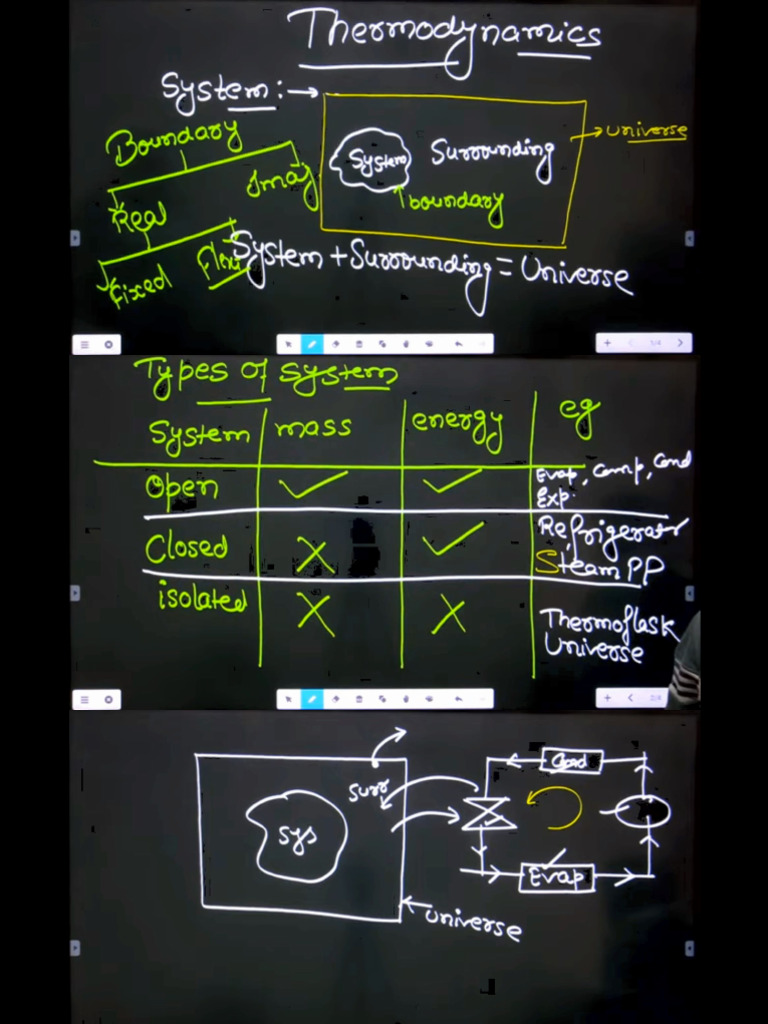 Thermodynamics
System :→
Boundary
Real
Imag
Fixed
Flexi
System
Surrounding
boundary
→ Universe
System + Surrounding = Universe
1/4
Types of System
System mass energy eg
Open ✓ ✓ Evap, Comp, Cond
Exp.
Closed X ✓ Refrigerator
Steam PP
isolated X X Thermoflask
Universe
2/4
Surr
Sys
Universe
Cond
Evap